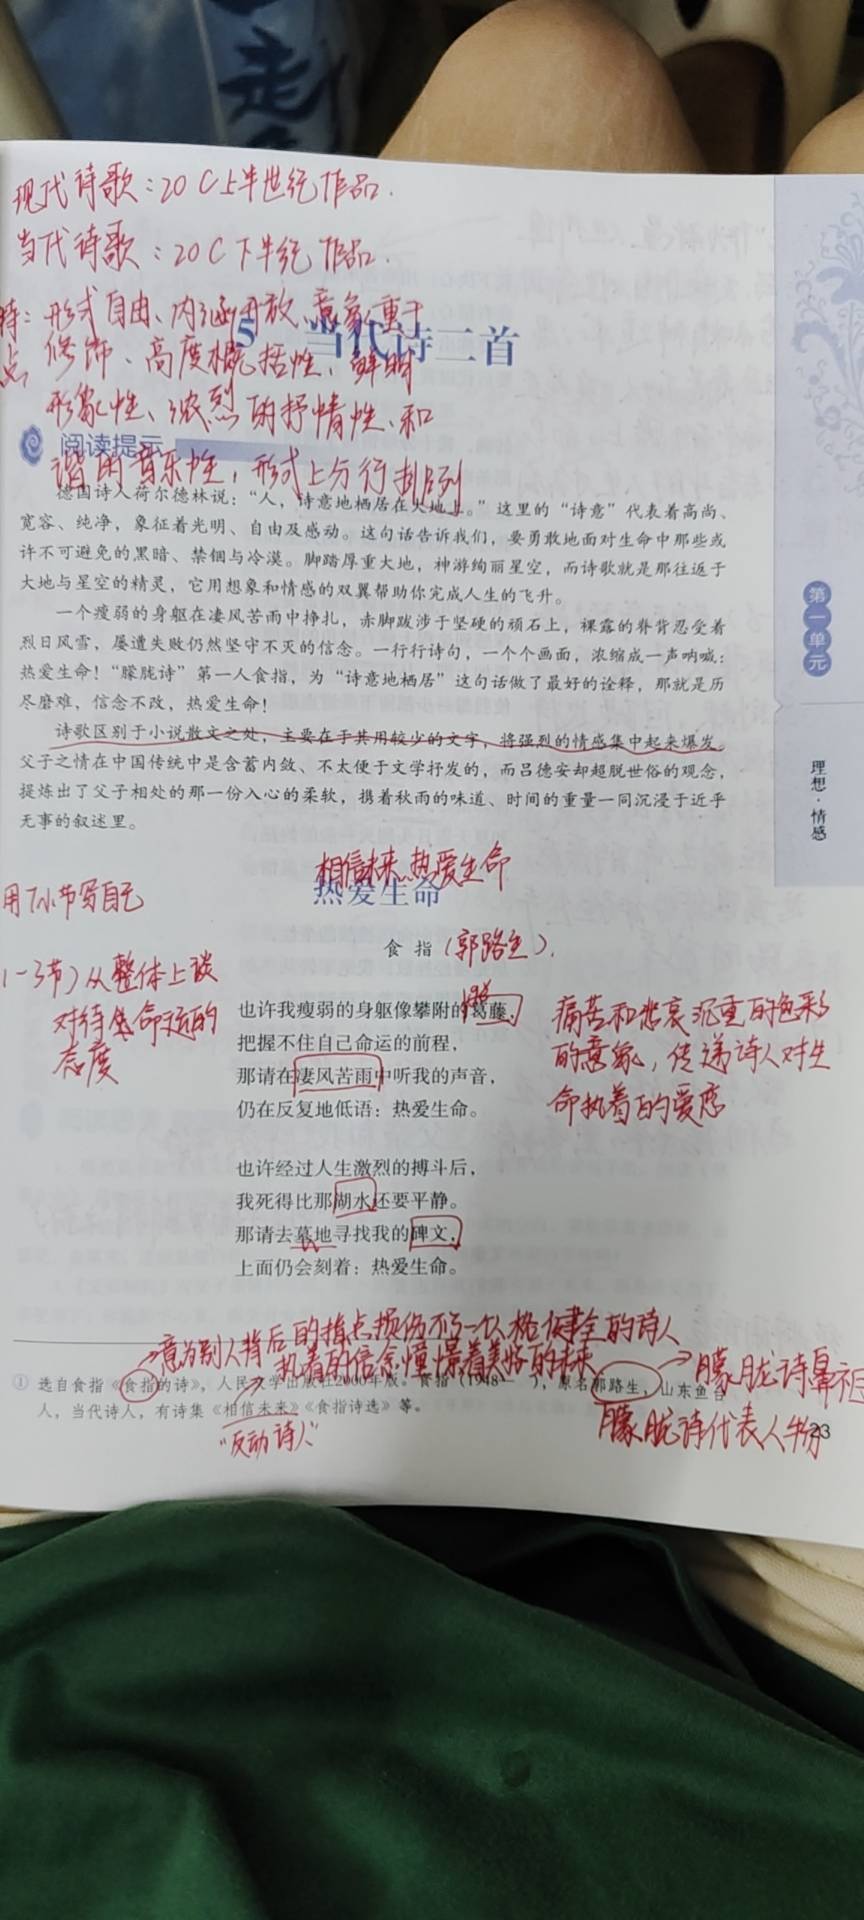 走
现代诗歌：20C上半世纪作品.
当代诗歌：20C下半纪作品.
特点：形式自由、内涵开放、意象重于
修饰、高度概括性、鲜明
形象性、浓烈的抒情性、和
谐的音乐性，形式上分行排列
5 当代诗二首
阅读提示
德国诗人荷尔德林说：“人，诗意地栖居在大地上。”这里的“诗意”代表着高尚、
宽容、纯净，象征着光明、自由及感动。这句话告诉我们，要勇敢地面对生命中那些或
许不可避免的黑暗、禁锢与冷漠。脚踏厚重大地，神游绚丽星空，而诗歌就是那往返于
大地与星空的精灵，它用想象和情感的双翼帮助你完成人生的飞升。
一个瘦弱的身躯在凄风苦雨中挣扎，赤脚跋涉于坚硬的顽石上，裸露的脊背忍受着
烈日风雪，屡遭失败仍然坚守不灭的信念。一行行诗句，一个个画面，浓缩成一声呐喊：
热爱生命！“朦胧诗”第一人食指，为“诗意地栖居”这句话做了最好的诠释，那就是历
尽磨难，信念不改，热爱生命！
诗歌区别于小说散文之处，主要在于其用较少的文字，将强烈的情感集中起来爆发。
父子之情在中国传统中是含蓄内敛、不太便于文学抒发的，而吕德安却超脱世俗的观念，
提炼出了父子相处的那一份入心的柔软，携着秋雨的味道、时间的重量一同沉浸于近乎
无事的叙述里。
第一单元
理想·情感
相信未来 热爱生命
热爱生命
用7小节写自己
食 指（郭路生）.
1-3节）从整体上谈
对待生命命运的
态度
也许我瘦弱的身躯像攀附的葛藤，
把握不住自己命运的前程，
那请在凄风苦雨中听我的声音，
仍在反复地低语：热爱生命。
痛苦和悲哀沉重的色彩
的意象，传递诗人对生
命执着的爱恋
也许经过人生激烈的搏斗后，
我死得比那湖水还要平静。
那请去墓地寻找我的碑文，
上面仍会刻着：热爱生命。
意为别人背后的指点损伤不了一个人格健全的诗人
执着的信念憧憬着美好的未来
① 选自食指《食指的诗》，人民文学出版社2000年版。食指（1948— ），原名郭路生，山东鱼台
人，当代诗人，有诗集《相信未来》《食指诗选》等。
朦胧诗鼻祖
“反动诗人”
朦胧诗代表人物
23